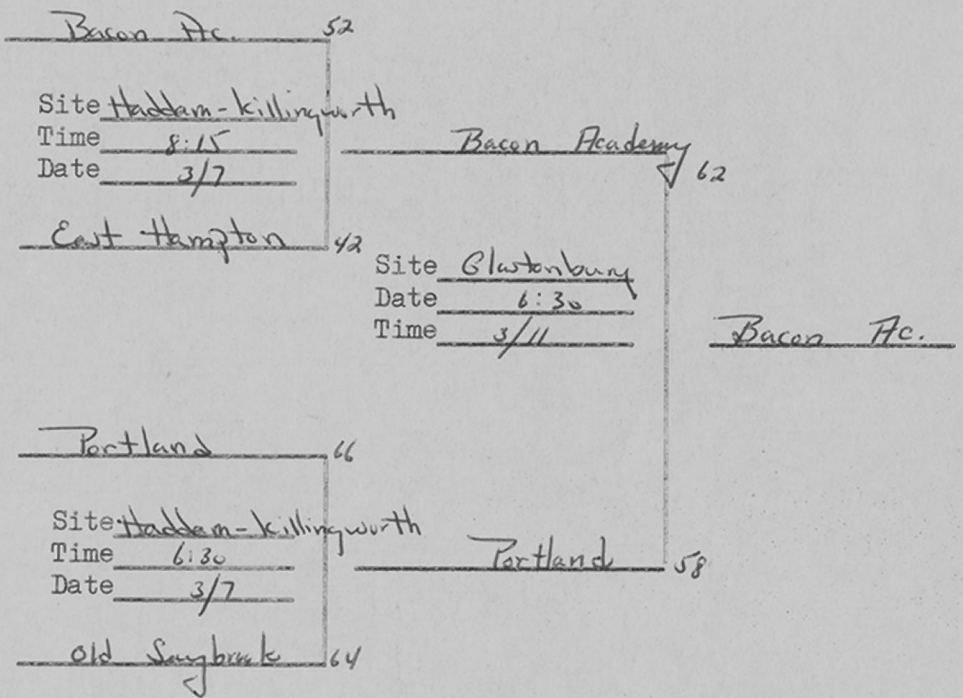 Bacon Ac. 52
Site Haddam-Killingworth
Time 8:15
Date 3/7
East Hampton 42
Bacon Academy 62
Site Glastonbury
Date 6:30
Time 3/11
Portland 58
Bacon Ac.
Portland 66
Site Haddam-Killingworth
Time 6:30
Date 3/7
Old Saybrook 64